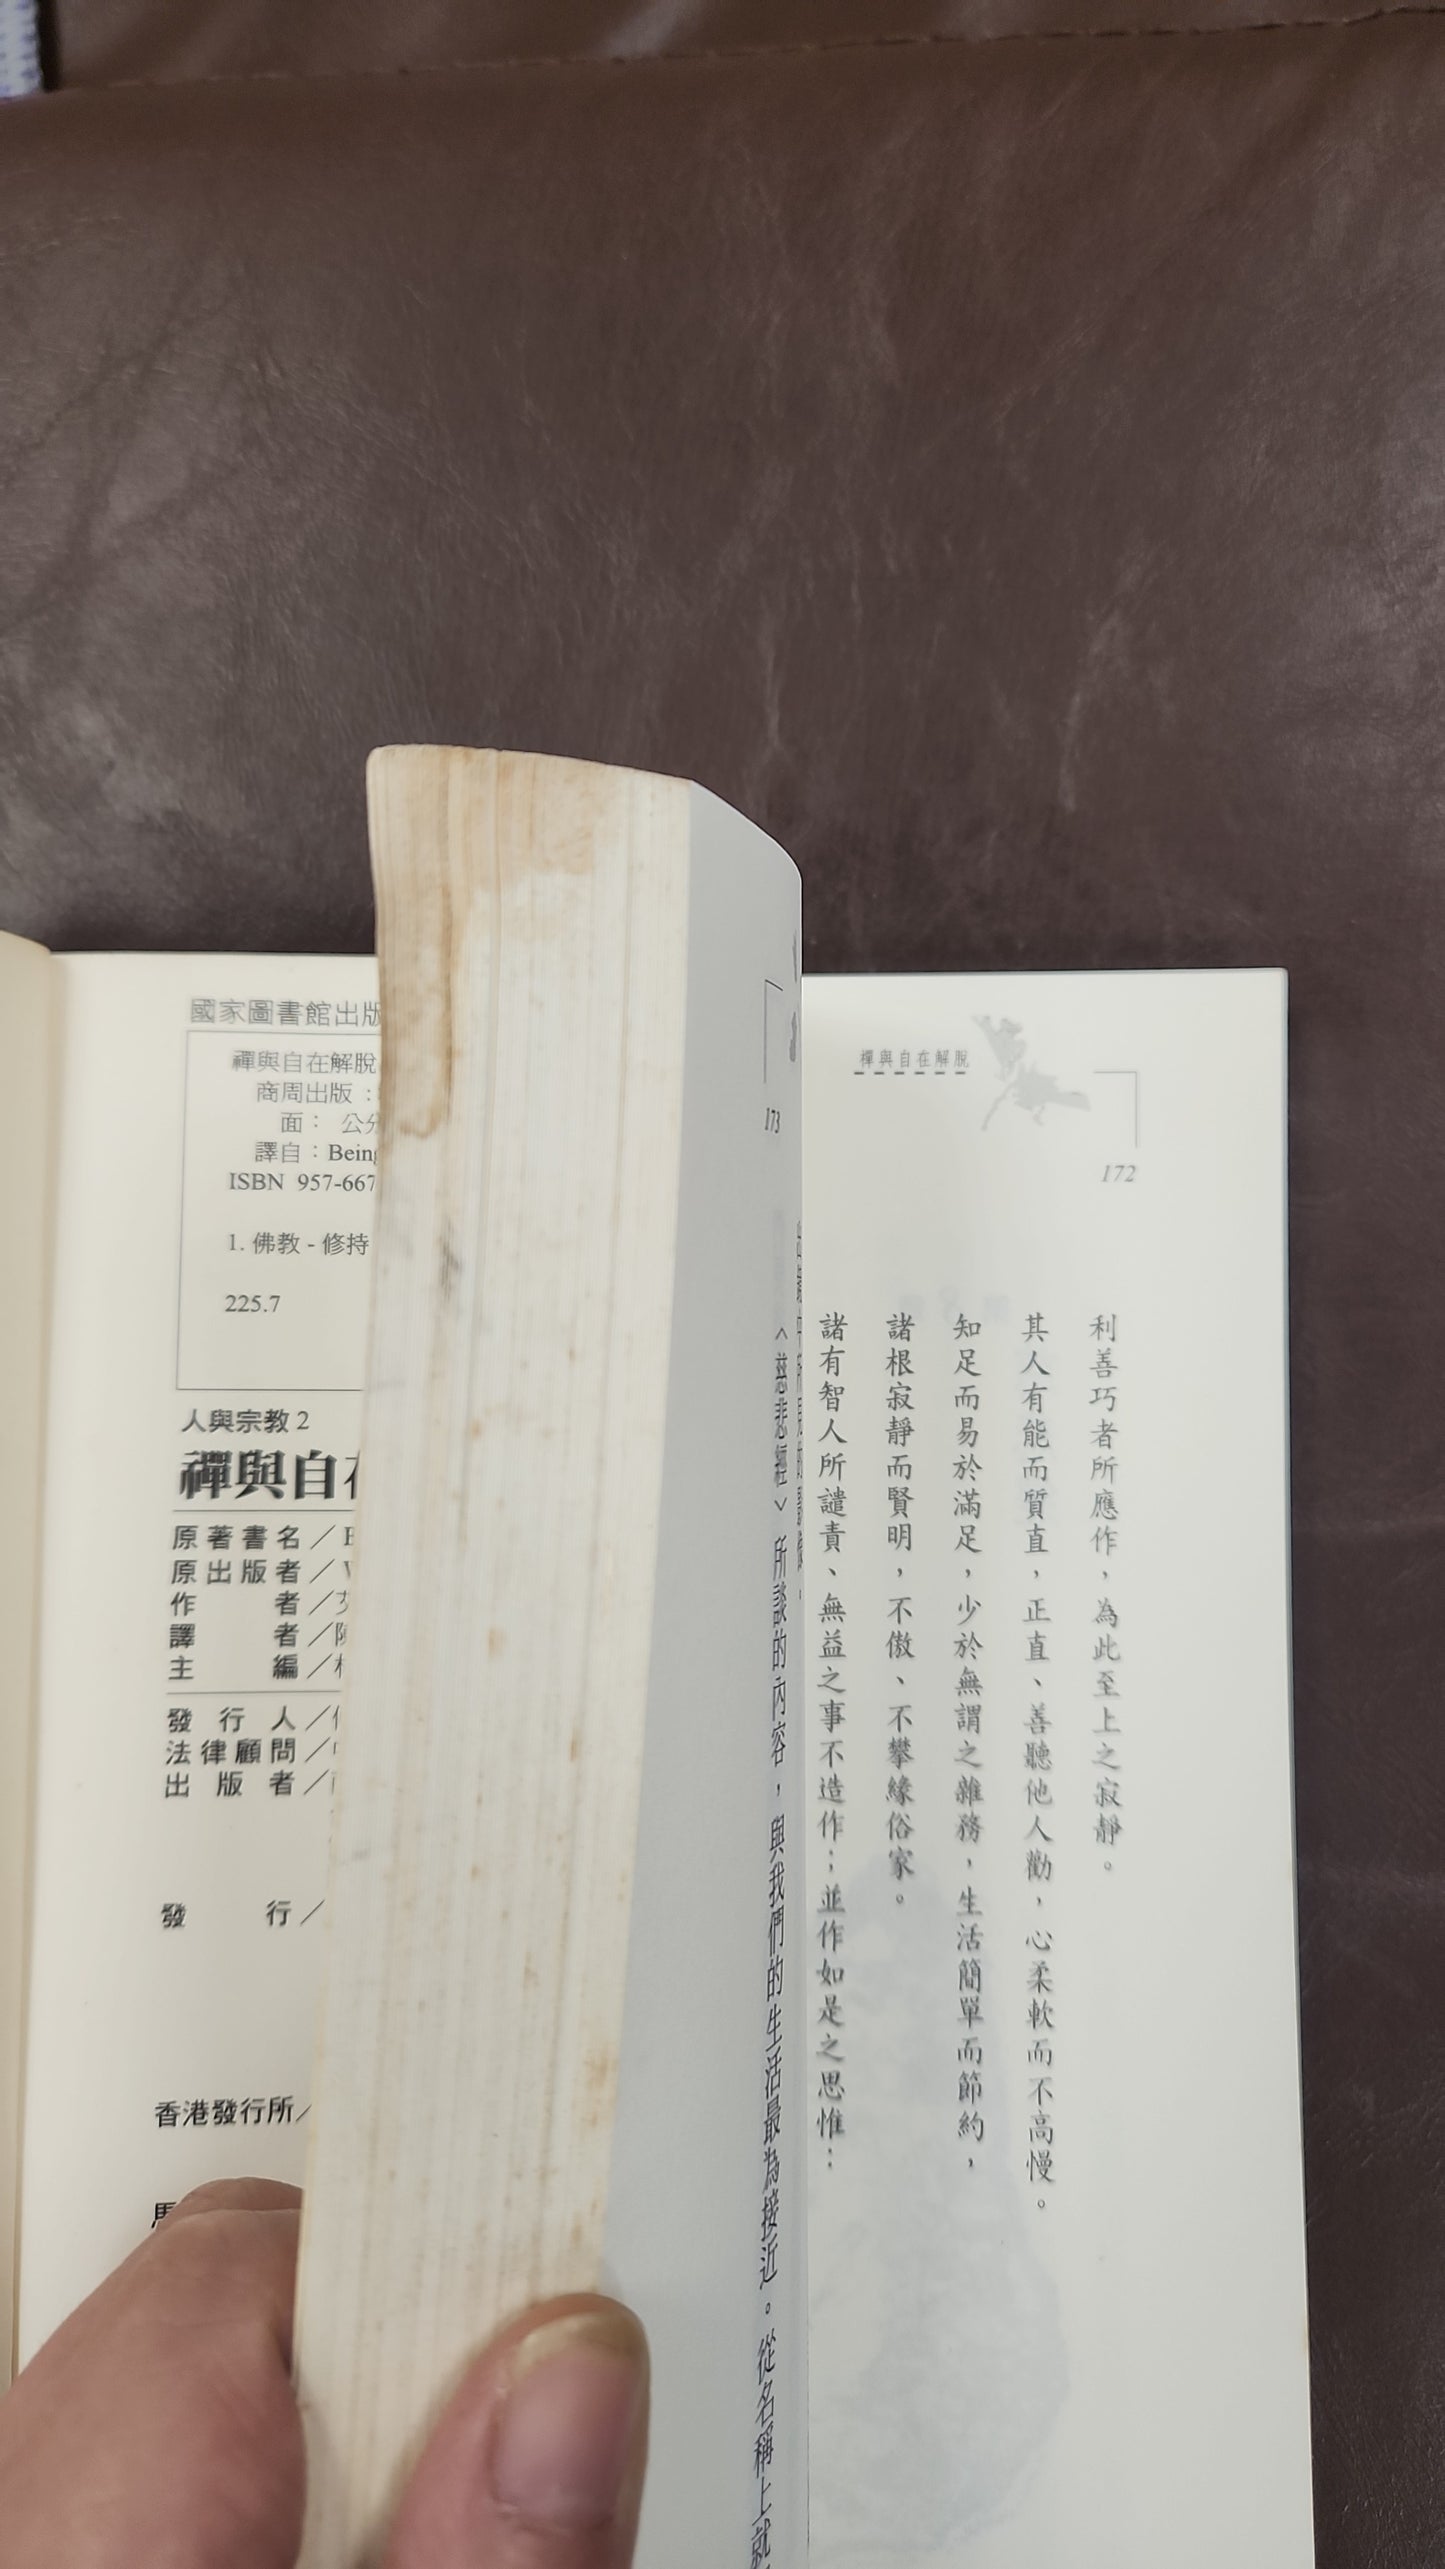 國家圖書館出版
禪與自在解脫
商周出版：
面： 公分
譯自：Being
ISBN 957-667
1. 佛教 - 修持
225.7
人與宗教 2
禪與自在
原著書名／
原出版者／
作者／
譯者／
主編／
發行人／
法律顧問／
出版者／
發行／
香港發行所／
馬
禪與自在解脫
172
利善巧者所應作，為此至上之寂靜。
其人有能而質直，正直、善聽他人勸，心柔軟而不高慢。
知足而易於滿足，少於無謂之雜務，生活簡單而節約，
諸根寂靜而賢明，不傲、不攀緣俗家。
諸有智人所譴責、無益之事不造作；並作如是之思惟：
173
〈慈悲經〉所談的內容，與我們的生活最為接近。從名稱上就